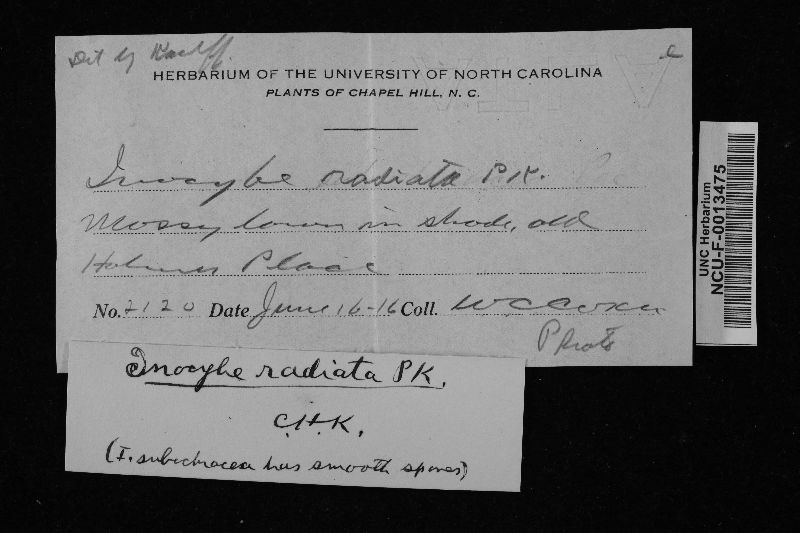 Det by Kauff.
HERBARIUM OF THE UNIVERSITY OF NORTH CAROLINA
PLANTS OF CHAPEL HILL, N. C.
Inocybe radiata PK.
Mossy lawn in shade, old
Holmes Place
No. 2120 Date June 16-16 Coll. W C Coker
Photo
UNC Herbarium
NCU-F-0013475
Inocybe radiata PK.
C.H.K.
(I. subochracea has smooth spores)